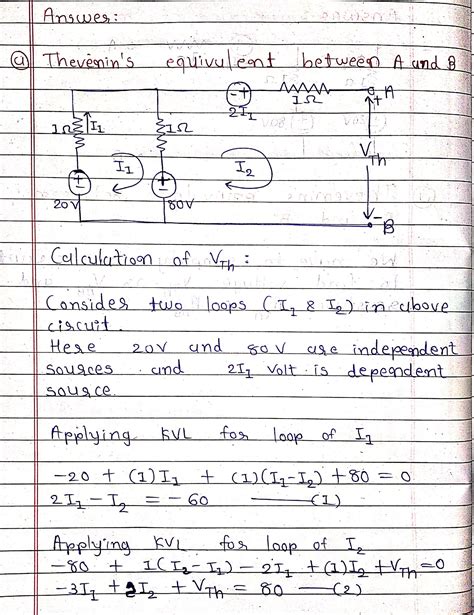 Answer:
(a) Thevenin's equivulent between A and B
- +
1Ω
A
+
2I₁
1Ω
I₁
1Ω
I₁
I₂
V_Th
+
-
+
-
20V
80V
-
B
Calculation of V_Th :
Consider two loops (I₁ & I₂) in above
circuit.
Here 20V and 80V are independent
sources and 2I₁ Volt is dependent
source.
Applying KVL for loop of I₁
-20 + (1)I₁ + (1)(I₁-I₂) + 80 = 0
2I₁ - I₂ = -60 ——— (1)
Applying KVL for loop of I₂
-80 + 1(I₂-I₁) - 2I₁ + (1)I₂ + V_Th = 0
-3I₁ + 2I₂ + V_Th = 80 — (2)